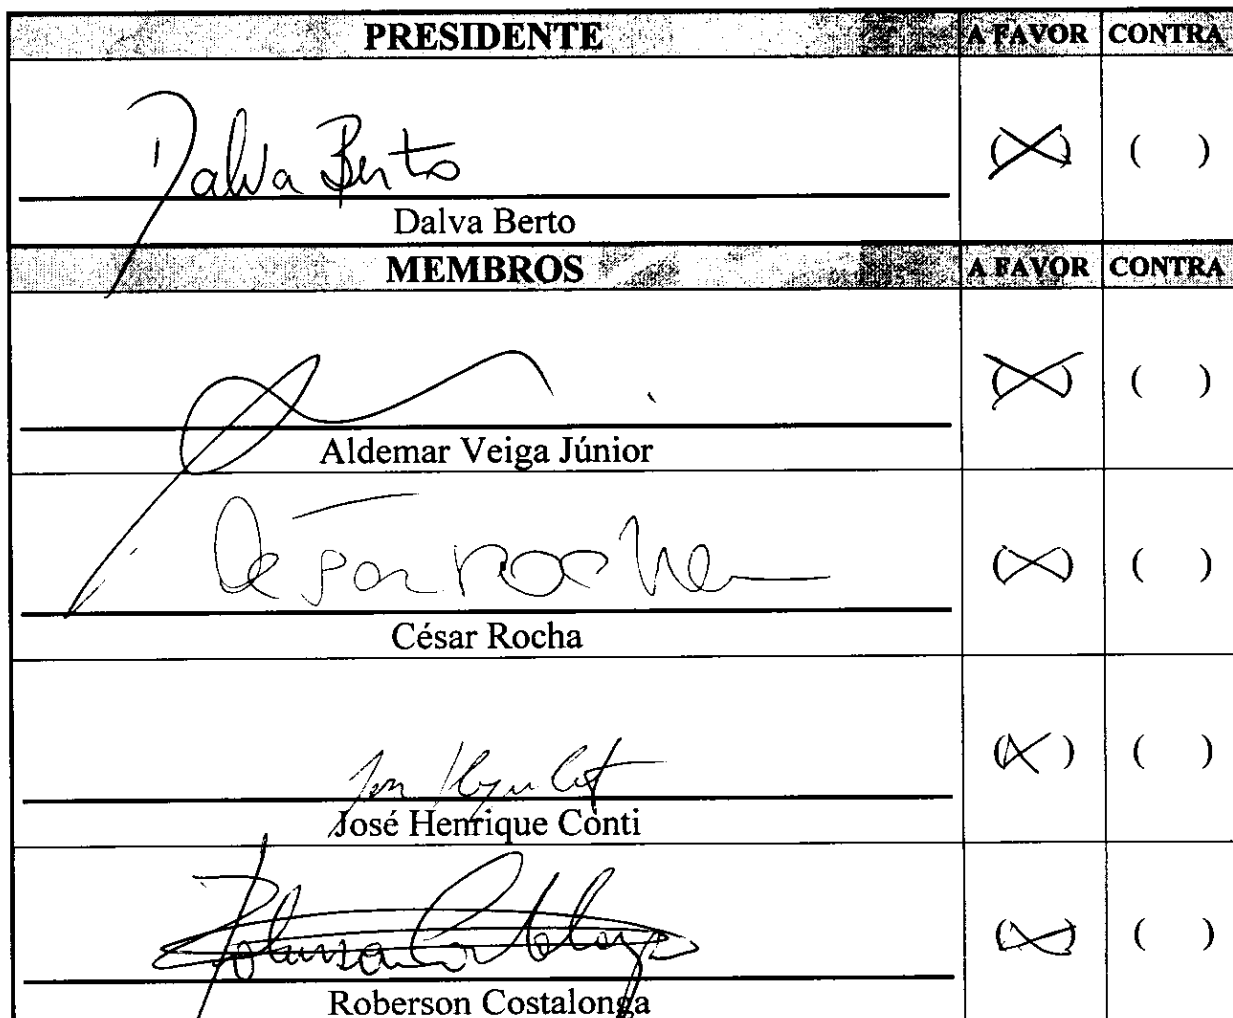 PRESIDENTE A FAVOR CONTRA
Dalva Berto (X) ( )
Dalva Berto
MEMBROS A FAVOR CONTRA
(X) ( )
Aldemar Veiga Júnior
César Rocha (X) ( )
César Rocha
(X) ( )
José Henrique Conti
(X) ( )
Roberson Costalonga